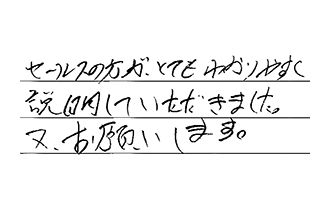 セールスの方が、とてもわかりやすく
説明していただきました。
又、お願いします。